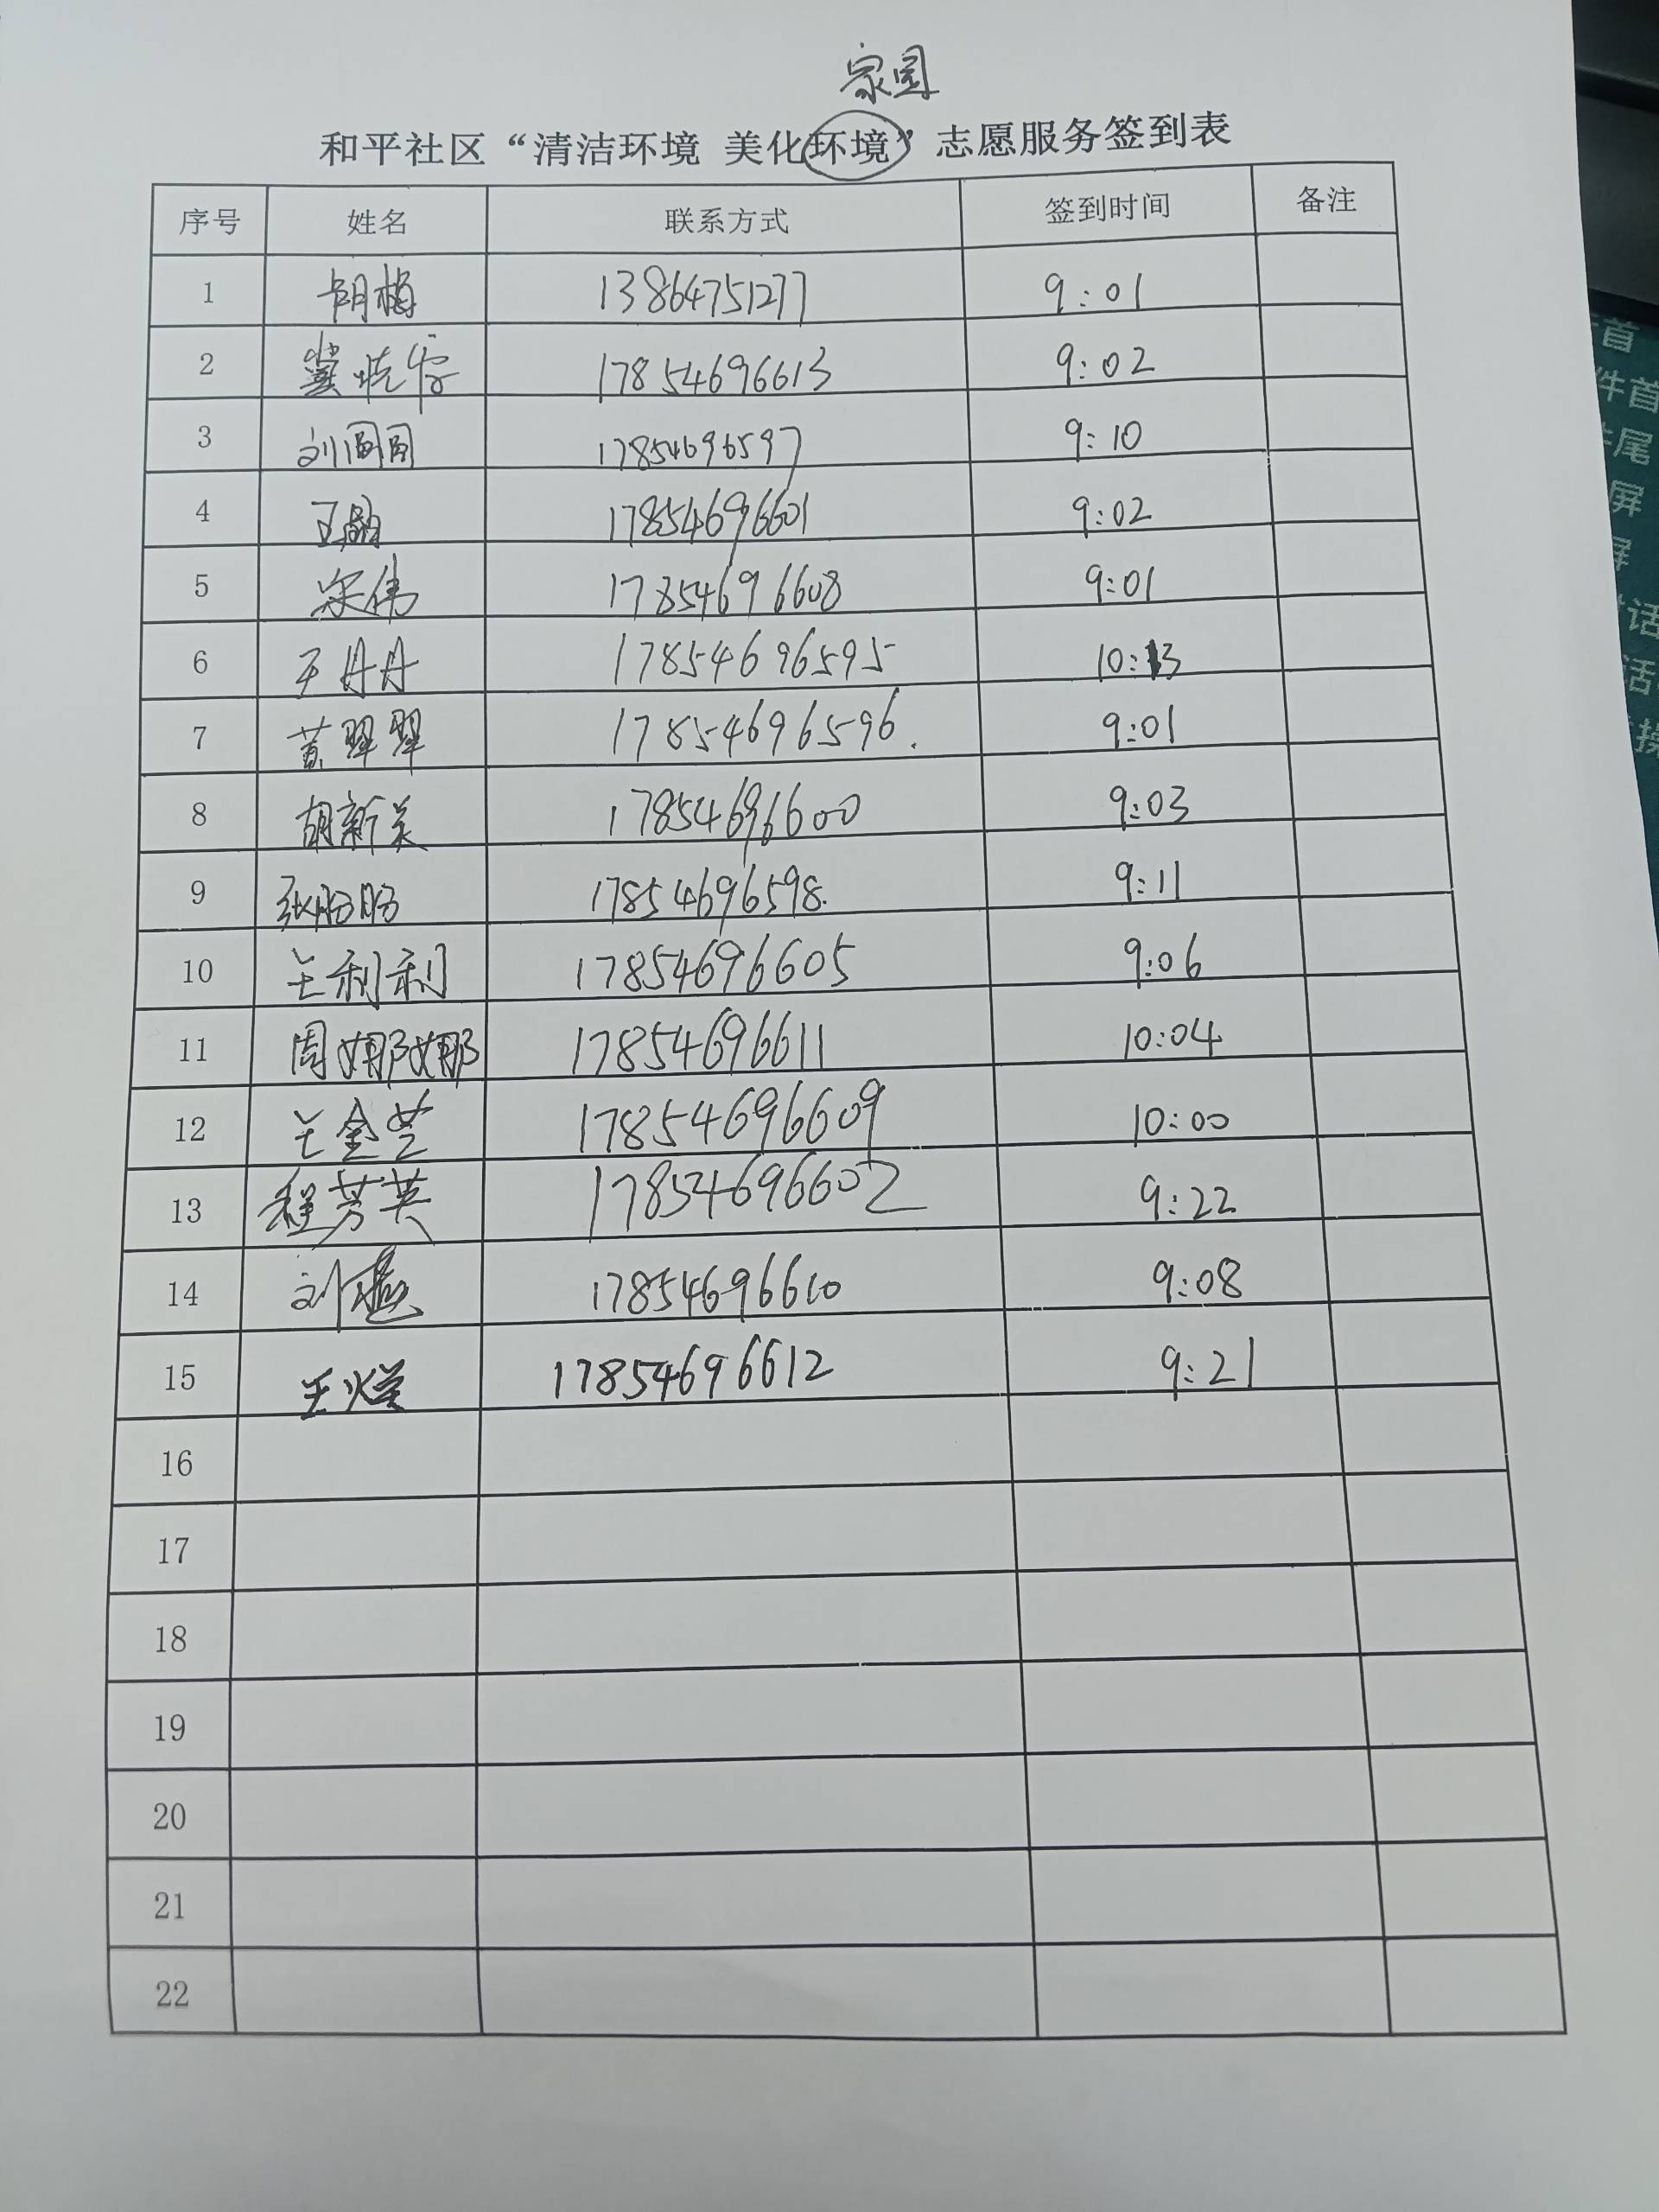 家园
和平社区“清洁环境 美化环境”志愿服务签到表
序号 姓名 联系方式 签到时间 备注
1 胡梅 13864751277 9:01
2 冀晓 17854696613 9:02
3 刘圆圆 17854696597 9:10
4 王晶 17854696601 9:02
5 宋伟 17854696608 9:01
6 王丹丹 17854696595 10:13
7 黄翠翠 17854696596. 9:01
8 胡新美 17854696600 9:03
9 张盼盼 17854696598. 9:11
10 王利利 17854696605 9:06
11 周娜娜 17854696611 10:04
12 王金兰 17854696609 10:00
13 程芳英 17854696602 9:22
14 刘燕 17854696610 9:08
15 王 17854696612 9:21
16
17
18
19
20
21
22
首
件首
尾
屏
屏
话
活
操